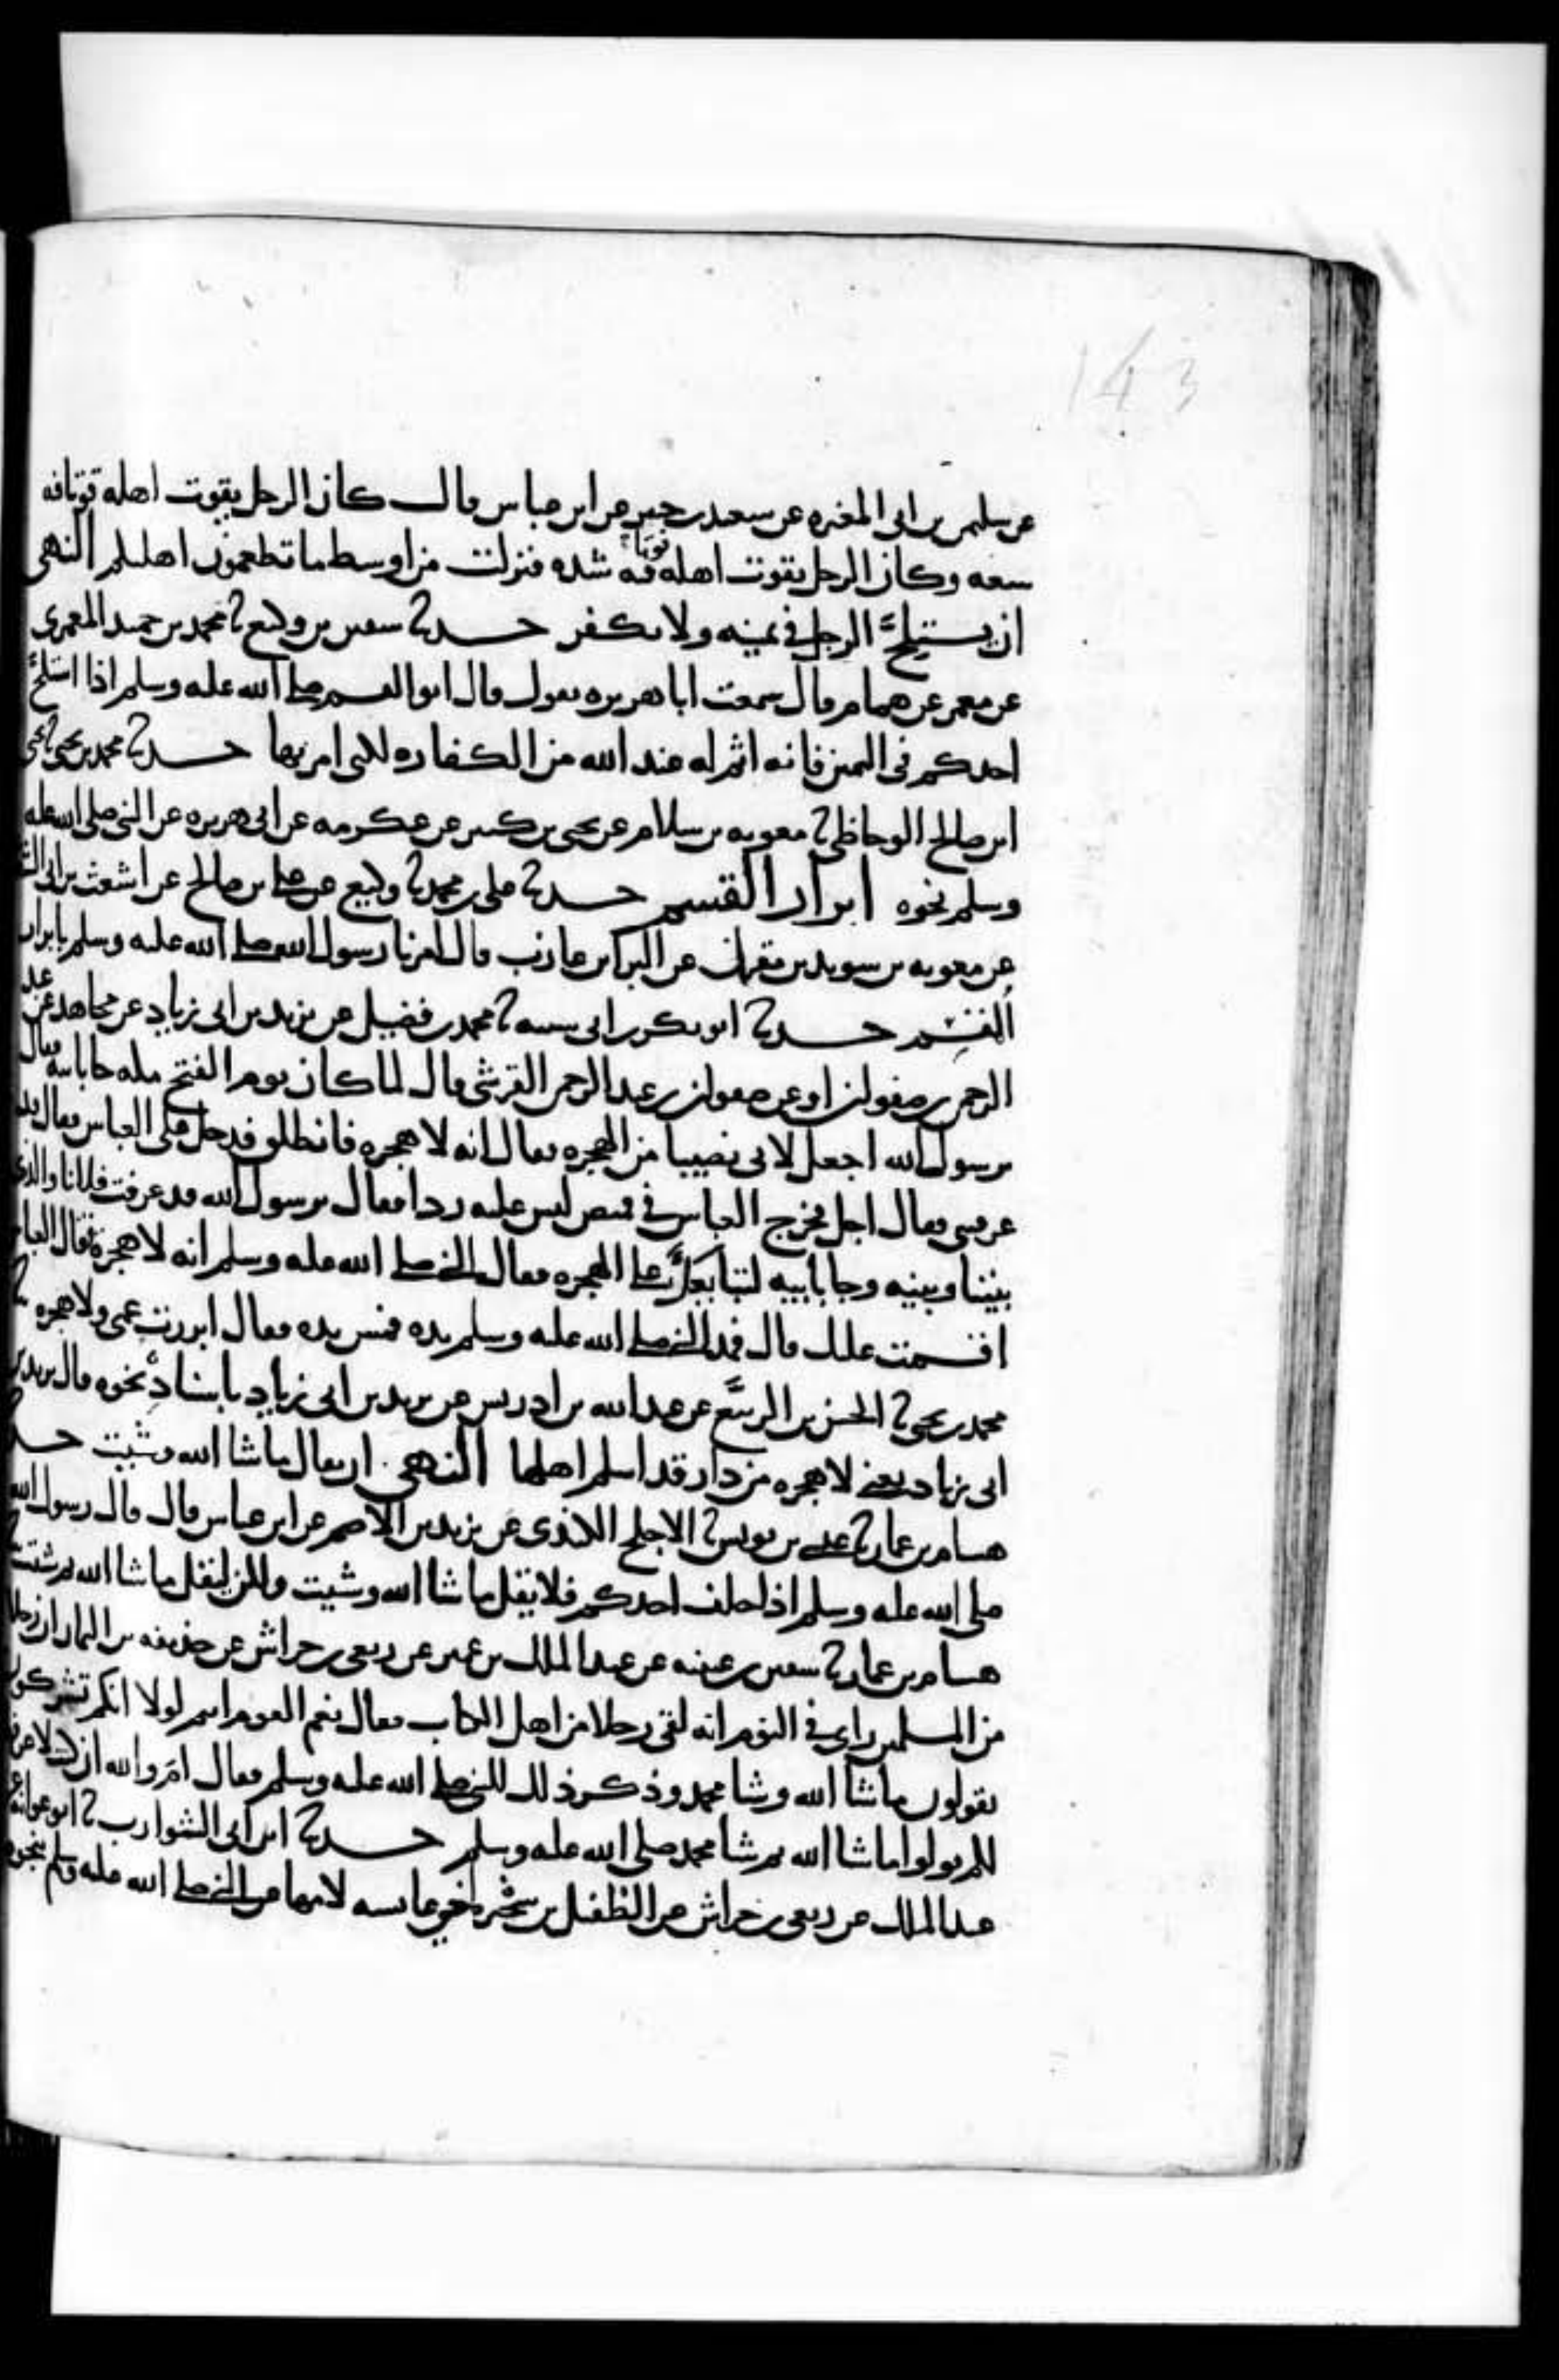 143
عن سليمن بن ابى المغيره عن سعيد بن جبير عن ابن عباس قال كان الرجل يقوت اهله قوتا فيه
سعه وكان الرجل يقوت اهله قوتا فيه شده فنزلت من اوسط ما تطعمون اهليكم النهى
ان يستلجّ الرجل فى يمينه ولا يكفر حدثنا سفين بن وكيع ثنا محمد بن حميد المعمرى
عن معمر عن همام قال سمعت ابا هريره يقول قال ابو القسم صلى الله عليه وسلم اذا استلجّ
احدكم فى اليمين فانه اثم له عند الله من الكفاره التى امر بها حدثنا محمد بن يحيى ثنا يحيى
ابن صالح الوحاظى ثنا معويه بن سلام عن يحيى بن كثير عن عكرمه عن ابى هريره عن النبى صلى الله عليه
وسلم نحوه ابرار القسم حدثنا على بن محمد ثنا وكيع عن على بن صالح عن اشعث بن ابى الش
عن معويه بن سويد بن مقرن عن البرا بن عازب قال امرنا رسول الله صلى الله عليه وسلم بابرار
القسم حدثنا ابو بكر بن ابى شيبه ثنا محمد بن فضيل عن يزيد بن ابى زياد عن مجاهد عن عبد
الرحمن بن صفوان او عن صفوان بن عبد الرحمن القرشى قال لما كان يوم الفتح جا بابيه فقال
يرسول الله اجعل لابى نصيبا من الهجره فقال انه لا هجره فانطلق فدخل على العباس فقال قد
عرفتنى فقال اجل فخرج العباس فى قميص ليس عليه ردا فقال يرسول الله قد عرفت فلانا والذى
بيننا وبينه وجا بابيه لتبايعه على الهجره فقال النبى صلى الله عليه وسلم انه لا هجرة فقال العباس
اقسمت عليك قال فمد النبى صلى الله عليه وسلم يده فمس يده فقال ابررت عمى ولا هجره ثنا
محمد بن يحيى ثنا الحسن بن الربيع عن عبد الله بن ادريس عن يزيد بن ابى زياد باسناده نحوه قال يزيد بن
ابى زياد يعنى لا هجره من دار قد اسلم اهلها النهى ان يقال ما شا الله وشيت حد
هشام بن عمار ثنا عيسى بن يونس ثنا الاجلح الكندى عن يزيد بن الاصم عن ابن عباس قال قال رسول الله
صلى الله عليه وسلم اذا حلف احدكم فلا يقل ما شا الله وشيت ولكن ليقل ما شا الله ثم شيت
هشام بن عمار ثنا سفين بن عيينه عن عبد الملك بن عمير عن ربعى بن حراش عن حذيفه بن اليمان ان رجلا
من المسلمين راى فى النوم انه لقى رجلا من اهل الكتاب فقال نعم القوم انتم لولا انكم تشركون
تقولون ما شا الله وشا محمد وذكر ذلك للنبى صلى الله عليه وسلم فقال ام والله ان كنت لاعرفها
لكم قولوا ما شا الله ثم شا محمد صلى الله عليه وسلم حدثنا ابن ابى الشوارب ثنا ابو عوانه عن
عبد الملك عن ربعى بن حراش عن الطفيل بن سخبره اخى عايشه لامها عن النبى صلى الله عليه وسلم نحوه